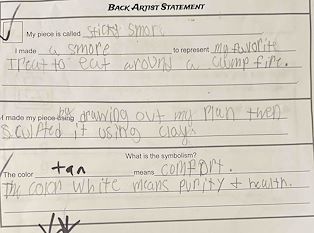 BACK ARTIST STATEMENT
My piece is called sticky smors
I made a smore to represent my favorite
Treat to eat around a camp fire.
I made my piece using by drawing out my plan then
Sculpted it using clay.
What is the symbolism?
The color tan means comfort.
The color white means purity & health.